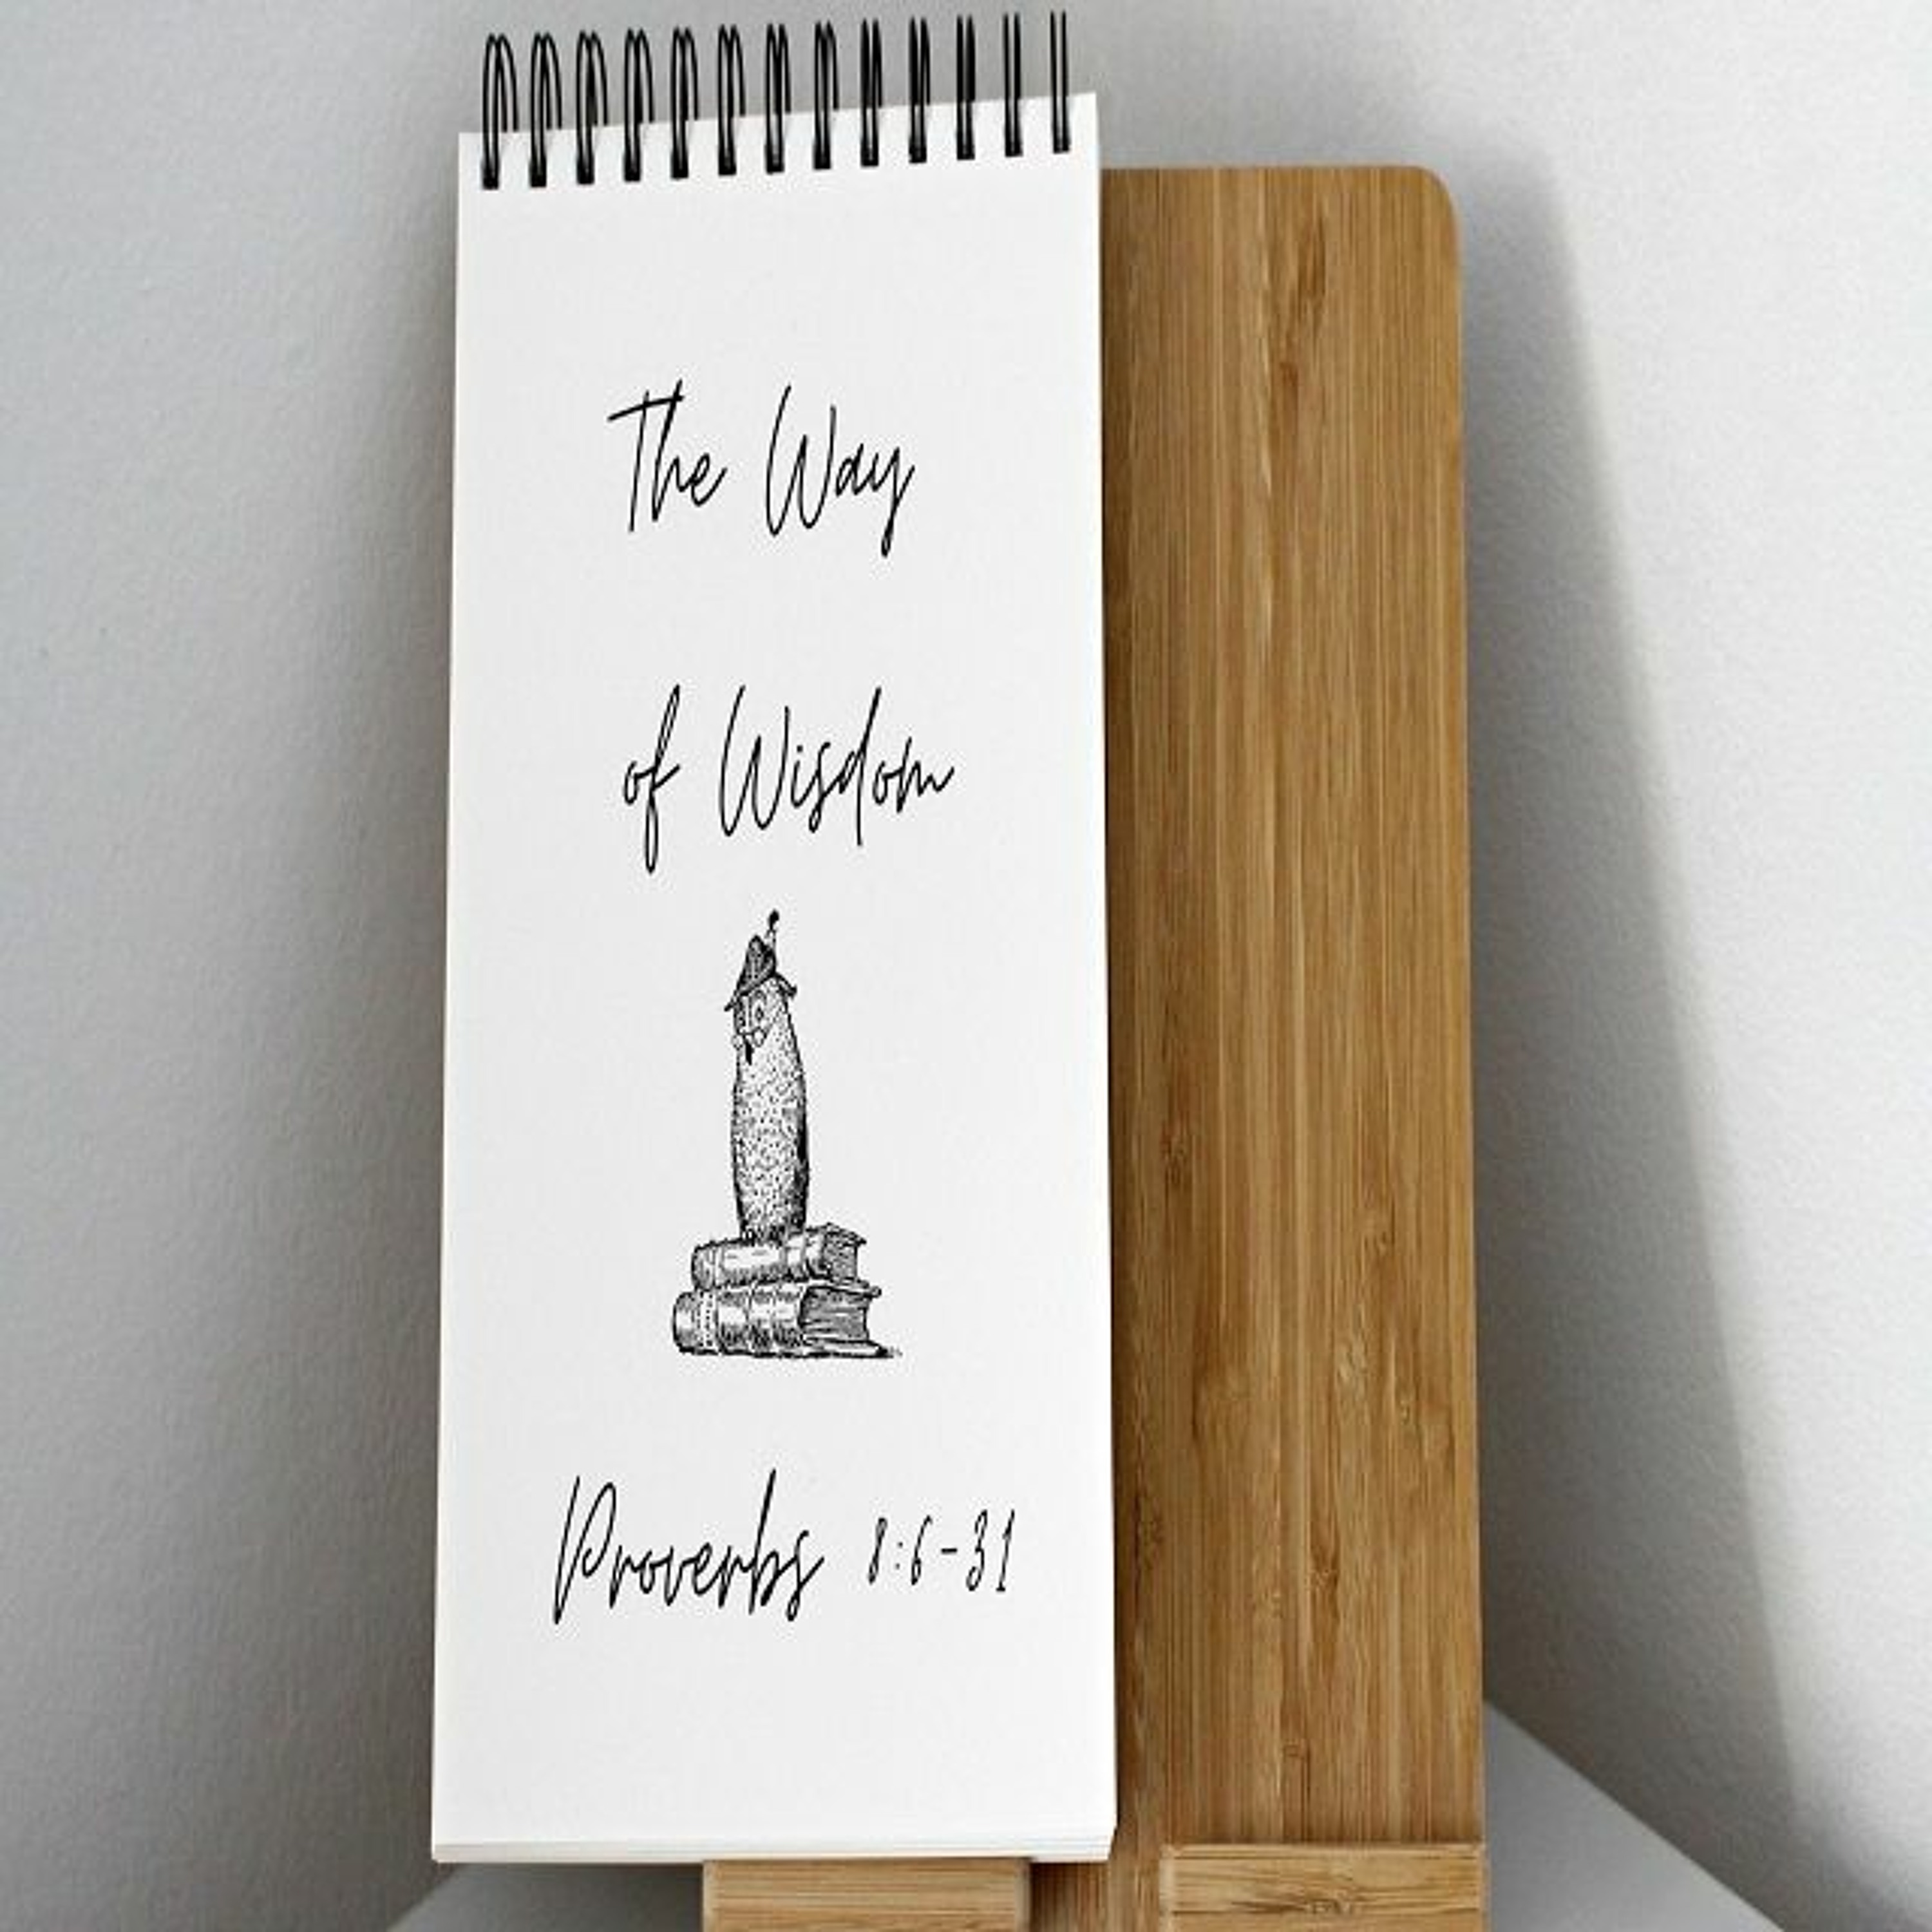 The Way
of Wisdom
Proverbs 8:6-31